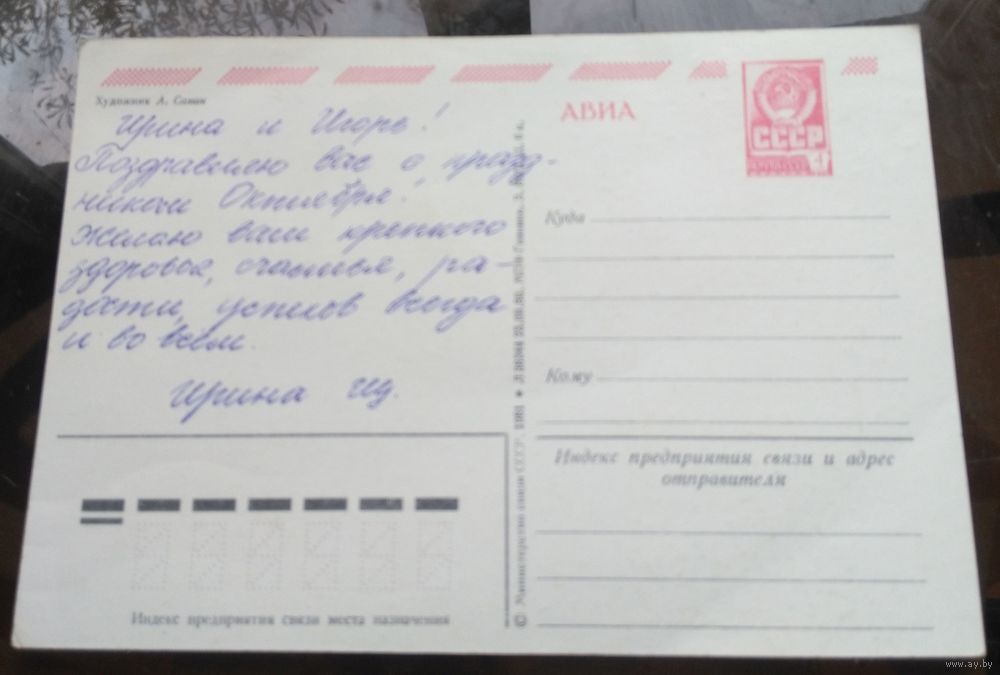 Художник А. Савин
Ирина и Игорь!
Поздравляю вас с празд-
ником Октября!
Желаю вам крепкого
здоровья, счастья, ра-
дости, успехов всегда
и во всём.
Ирина
АВИА
СССР
Куда
Кому
Индекс предприятия связи и адрес
отправителя
Индекс предприятия связи места назначения
© Министерство связи СССР, 1981
www.ay.by